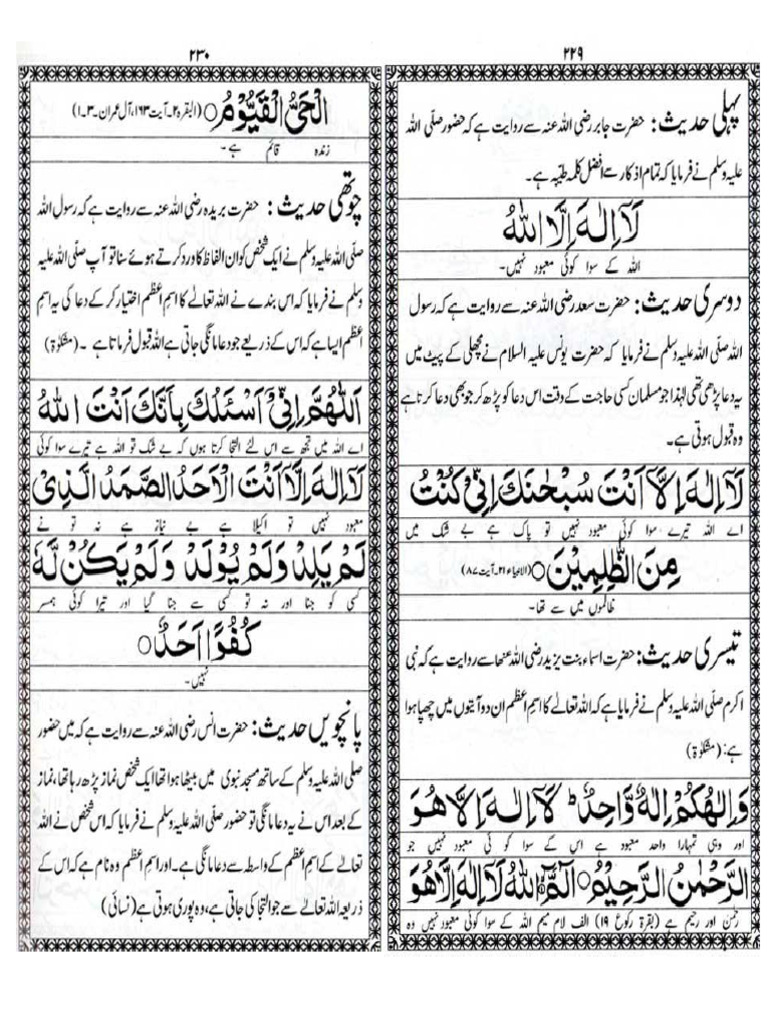 ۲۲۹
پہلی حدیث: حضرت جابر رضی اللہ عنہ سے روایت ہے کہ حضور صلّی اللہ
علیہ وسلم نے فرمایا کہ تمام اذکار سے افضل کلمہ طیّبہ ہے۔
لَآ اِلٰهَ اِلَّا اللهُ
اللہ کے سوا کوئی معبود نہیں۔
دوسری حدیث: حضرت سعد رضی اللہ عنہ سے روایت ہے کہ رسول
اللہ صلّی اللہ علیہ وسلم نے فرمایا کہ حضرت یونس علیہ السلام نے مچھلی کے پیٹ میں
یہ دعا پڑھی تھی لہٰذا جو مسلمان کسی حاجت کے وقت اس دعا کو پڑھ کر جو بھی دعا کرتا ہے
وہ قبول ہوتی ہے۔
لَآ اِلٰهَ اِلَّآ اَنْتَ سُبْحٰنَكَ اِنِّیْ كُنْتُ
اے اللہ تیرے سوا کوئی معبود نہیں تو پاک ہے بے شک میں
مِنَ الظّٰلِمِیْنَ○ (الانبیاء ۲۱۔ آیت ۸۷)
ظالموں میں سے تھا۔
تیسری حدیث: حضرت اسماء بنت یزید رضی اللہ عنھا سے روایت ہے کہ نبی
اکرم صلّی اللہ علیہ وسلم نے فرمایا ہے کہ اللہ تعالےٰ کا اسمِ اعظم ان دو آیتوں میں چھپا ہوا
ہے: (مشکوٰۃ)
وَاِلٰهُكُمْ اِلٰهٌ وَّاحِدٌ ۚ لَآ اِلٰهَ اِلَّا هُوَ
اور وہی تمہارا واحد معبود ہے اس کے سوا کوئی معبود نہیں جو
الرَّحْمٰنُ الرَّحِیْمُ○ الٓمّٓ اللهُ لَآ اِلٰهَ اِلَّا هُوَ
رحمٰن اور رحیم ہے (بقرۃ رکوع ۱۹) الف لام میم اللہ کے سوا کوئی معبود نہیں وہ
۲۳۰
الْحَیُّ الْقَیُّوْمُ○ (البقرہ ۲۔ آیت ۱۶۳، آل عمران۔۳۔۱)
زندہ قائم ہے۔
چوتھی حدیث: حضرت بریدہ رضی اللہ عنہ سے روایت ہے کہ رسول اللہ
صلّی اللہ علیہ وسلم نے ایک شخص کو ان الفاظ کا ورد کرتے ہوئے سنا تو آپ صلّی اللہ علیہ
وسلم نے فرمایا کہ اس بندے نے اللہ تعالےٰ کا اسمِ اعظم اختیار کر کے دعا کی یہ اسمِ
اعظم ایسا ہے کہ اس کے ذریعے جو دعا مانگی جاتی ہے اللہ قبول فرماتا ہے۔ (مشکوٰۃ)
اَللّٰهُمَّ اِنِّیْٓ اَسْئَلُكَ بِاَنَّكَ اَنْتَ اللهُ
اے اللہ میں تجھ سے اس لئے التجا کرتا ہوں کہ بے شک تو اللہ ہے تیرے سوا کوئی
لَآ اِلٰهَ اِلَّآ اَنْتَ الْاَحَدُ الصَّمَدُ الَّذِیْ
معبود نہیں تو اکیلا ہے بے نیاز ہے نہ تو نے
لَمْ یَلِدْ وَلَمْ یُوْلَدْ وَلَمْ یَكُنْ لَّهٗ
کسی کو جنا اور نہ تو کسی سے جنا گیا اور تیرا کوئی ہمسر
كُفُوًا اَحَدٌ○
نہیں۔
پانچویں حدیث: حضرت انس رضی اللہ عنہ سے روایت ہے کہ میں حضور
صلی اللہ علیہ وسلم کے ساتھ مسجد نبوی میں بیٹھا ہوا تھا ایک شخص نماز پڑھ رہا تھا، نماز
کے بعد اس نے یہ دعا مانگی تو حضور صلّی اللہ علیہ وسلم نے فرمایا کہ اس شخص نے اللہ
تعالےٰ کے اسمِ اعظم کے واسطہ سے دعا مانگی ہے۔ اور اسمِ اعظم وہ نام ہے کہ اس کے
ذریعہ اللہ تعالےٰ سے جو التجا کی جاتی ہے، وہ پوری ہوتی ہے (نسائی)